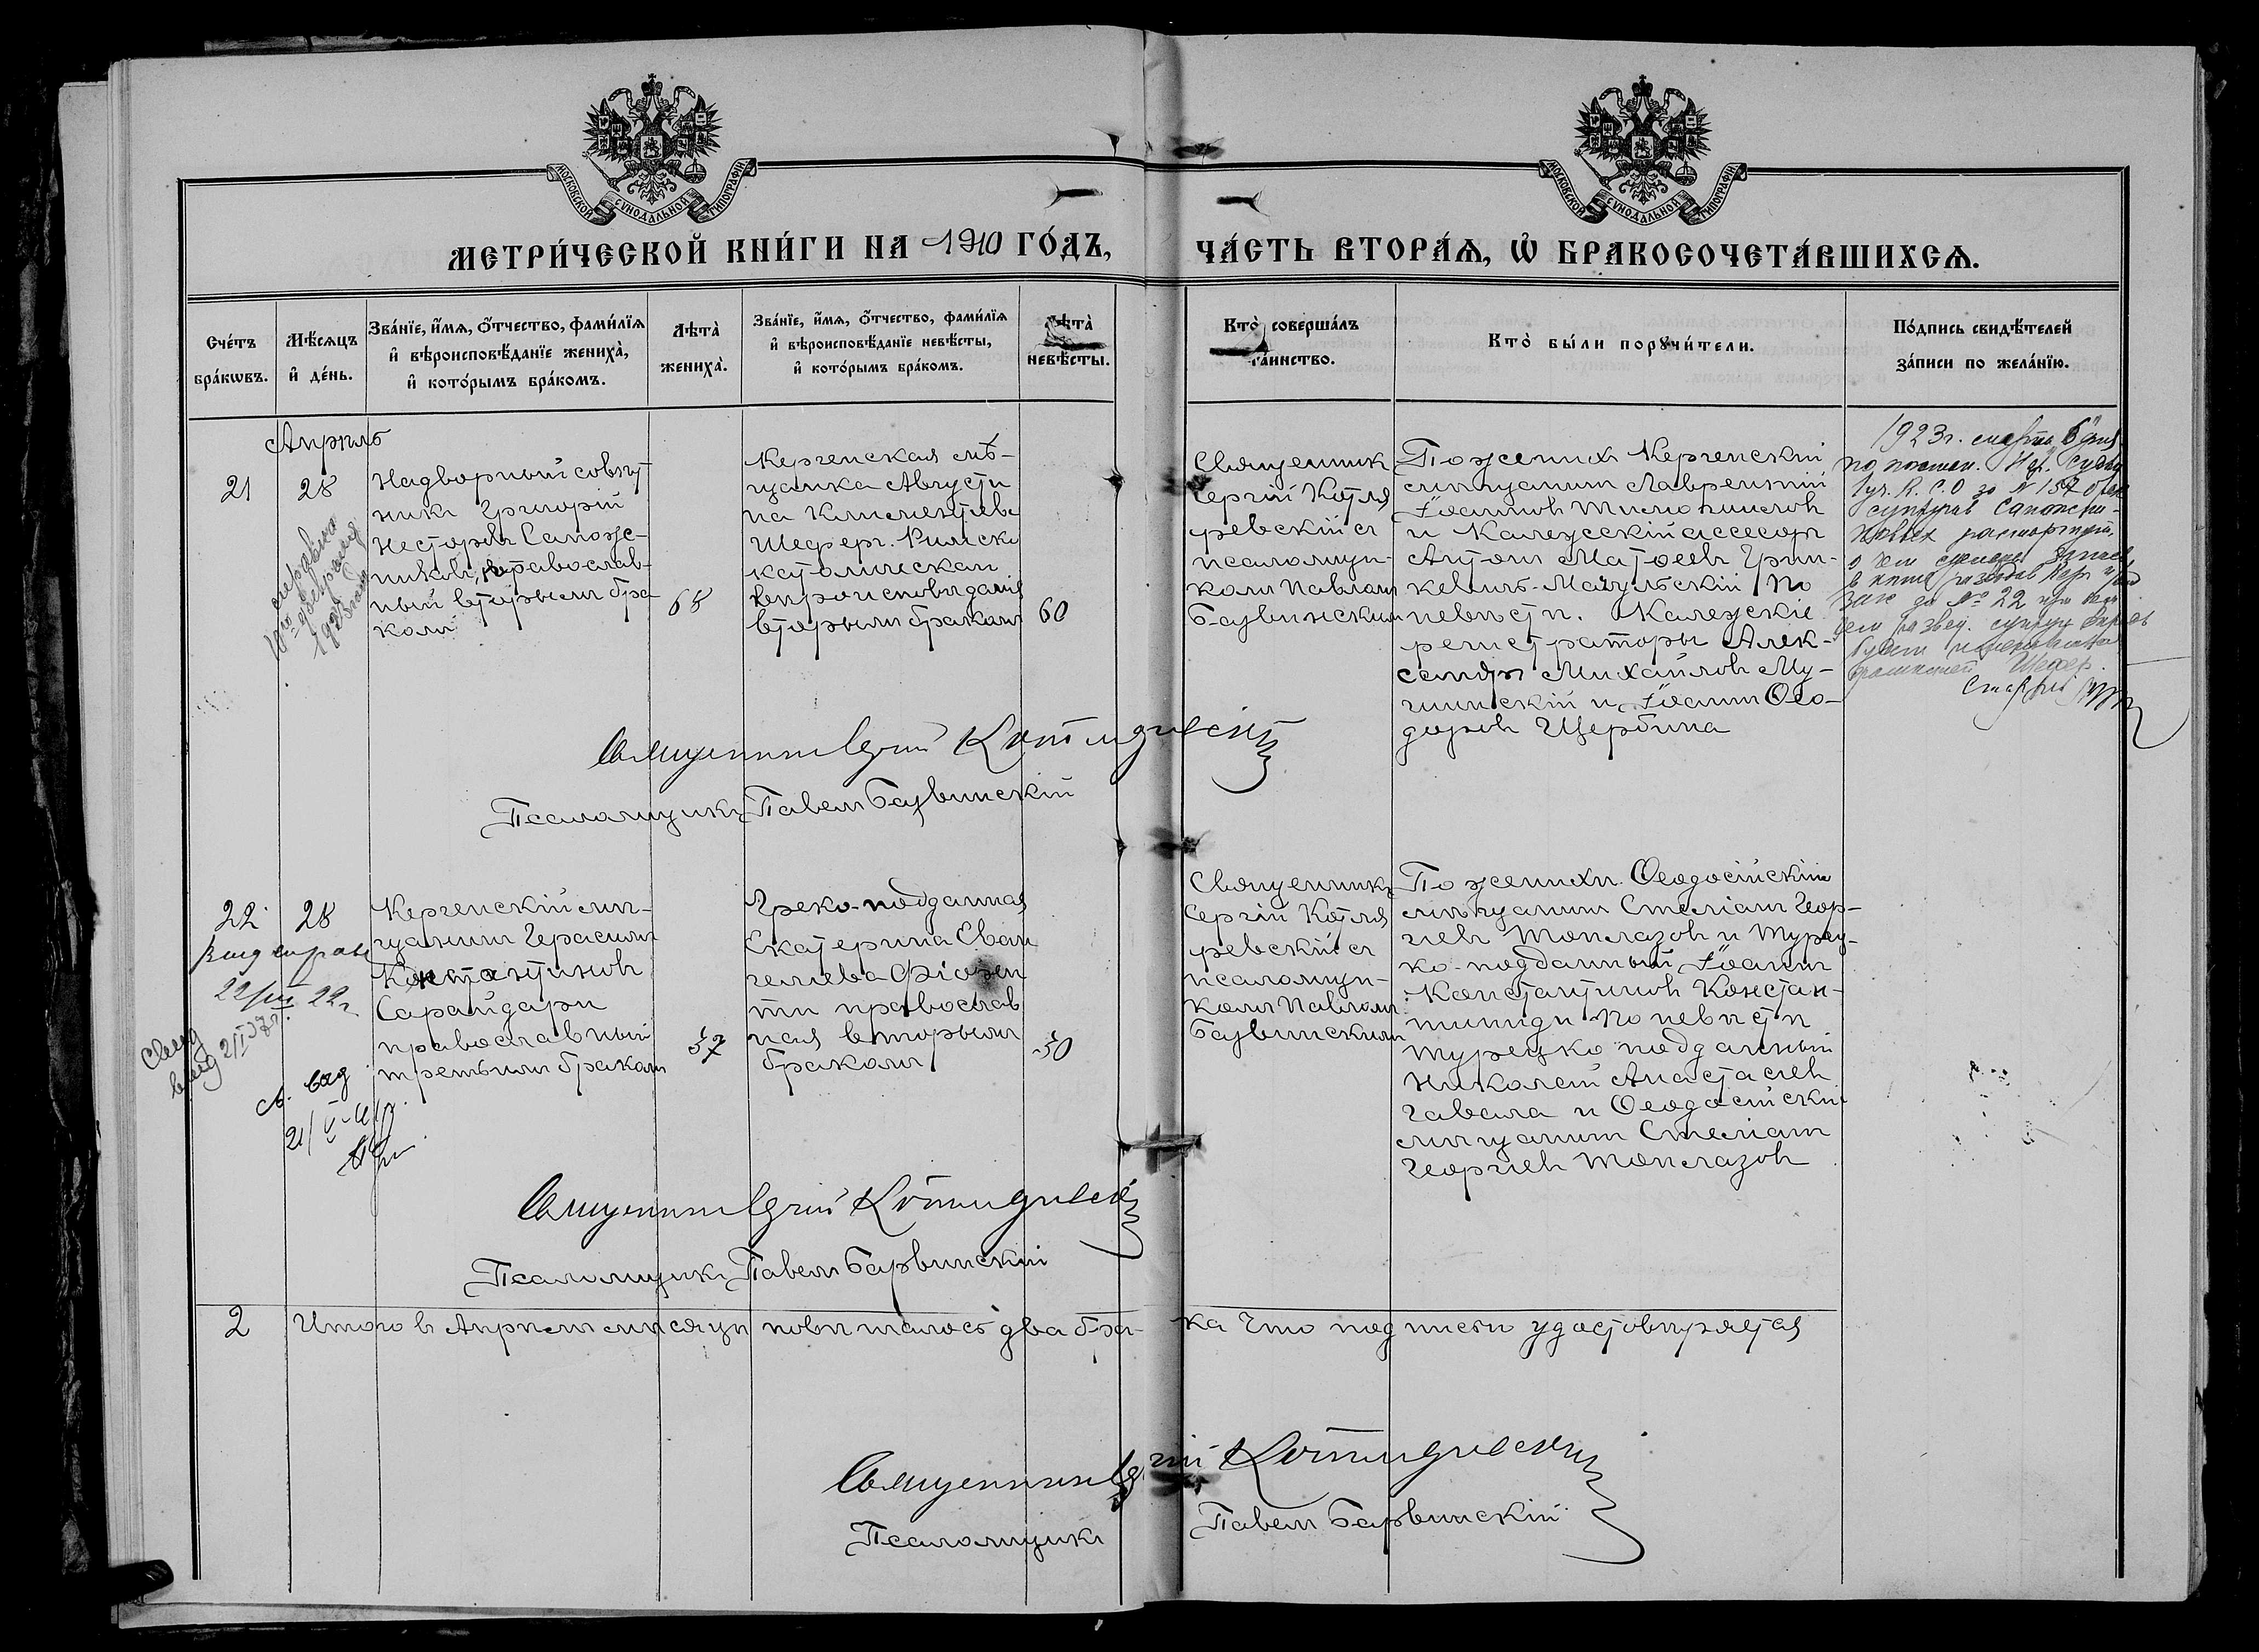 МОСКОВСКОЙ СѴНОДАЛЬНОЙ ТИПОГРАФІИ
МОСКОВСКОЙ СѴНОДАЛЬНОЙ ТИПОГРАФІИ
МЕТРИ́ЧЕСКОЙ КНИ́ГИ НА 1910 ГО́ДЪ,
ЧА́СТЬ ВТОРА́Ѧ, Ѡ҆ БРАКОСОЧЕТА́ВШИХСѦ.
Сче́тъ
бра́кѡвъ.
Мѣ́сѧцъ
и҆ де́нь.
Зва́нїе, и҆́мѧ, ѻ҆́тчество, фами́лїѧ
и҆ вѣроисповѣ́данїе жениха̀,
и҆ кото́рымъ бра́комъ.
Лѣта̀
жениха̀.
Зва́нїе, и҆́мѧ, ѻ҆́тчество, фами́лїѧ
и҆ вѣроисповѣ́данїе невѣ́сты,
и҆ кото́рымъ бра́комъ.
Лѣта̀
невѣ́сты.
Кто̀ соверша́лъ
та́инство.
Кто̀ бы́ли порꙋчи́тели.
По́дпись свидѣ́телей
за́писи по жела́нїю.
Апрѣль
21
28
Надворный совѣт-
никъ Григорій
Несторовъ Сапож-
никовъ, православ-
ный вторымъ бра-
комъ
68
Керченская мѣ-
щанка Августи
на Климентьева
Шеферъ. Римско
католическаго
вѣроисповѣданія
вторымъ бракомъ
60
Священникъ
Сергій Котля
ревскій съ
псаломщи-
комъ Павломъ
Барвинскимъ
По женихѣ Керченскій
мѣщанинъ Лаврентій
Іоанновъ Тимошиновъ
и Коллежскій ассесоръ
Антонъ Матѳеевъ Грин-
кевичъ-Мочульскій По
невѣстѣ. Коллежскіе
регистраторы Алек-
сандръ Михайловъ Му-
шинскій и Іоаннъ Ѳео-
доровъ Щербина
1923г. марта 6 дня
по постан. Нар. Суда
1 уч. К. С. О за № 157 брак
супругов Сапожни-
ковых расторгнут,
о чем сделана запись
в книге разводов
за № 22 при чем
Шефер.
Священникъ Сергій Котляревскій
Псаломщикъ Павелъ Барвинскій
22
28
Вид справ
22/VII 22г
св. выд
Керченскій мѣ-
щанинъ Герасимъ
Константиновъ
Сарандари
православный
третьимъ бракомъ
57
Греко-подданная
Екатерина Еван
гелиева Фіорен
ти православ
ная вторымъ
бракомъ
50
Священникъ
Сергій Котля
ревскій съ
псаломщи-
комъ Павломъ
Барвинскимъ
По женихѣ Ѳеодосійскій
мѣщанинъ Стеліанъ Геор-
гіевъ Топлазовъ и Турец-
ко-подданный Іоаннъ
Константиновъ Констан-
тиниди По невѣстѣ
турецко подданный
Николай Анастасіев
Гавала и Ѳеодосійскій
мѣщанинъ Стеліанъ
Георгіевъ Топлазовъ
Священникъ Сергій Котляревскій
Псаломщикъ Павелъ Барвинскій
2 Итого въ Апрѣлѣ мѣсяцѣ повѣнчалось два бра-
ка Что подписью удостовѣряется
Священникъ Сергій Котляревскій
Псаломщикъ Павелъ Барвинскій